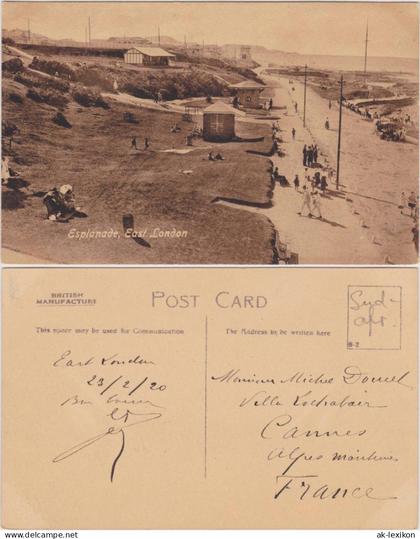 Esplanade, East London
BRITISH
MANUFACTURE
POST CARD
This space may be used for Communication
The Address to be written here
Süd-
afr.
B-2
East London
23/2/20
Monsieur Michel
Villa Lochabair
Cannes
Alpes maritimes
France
© ak-lexikon
ak-lexikon.de